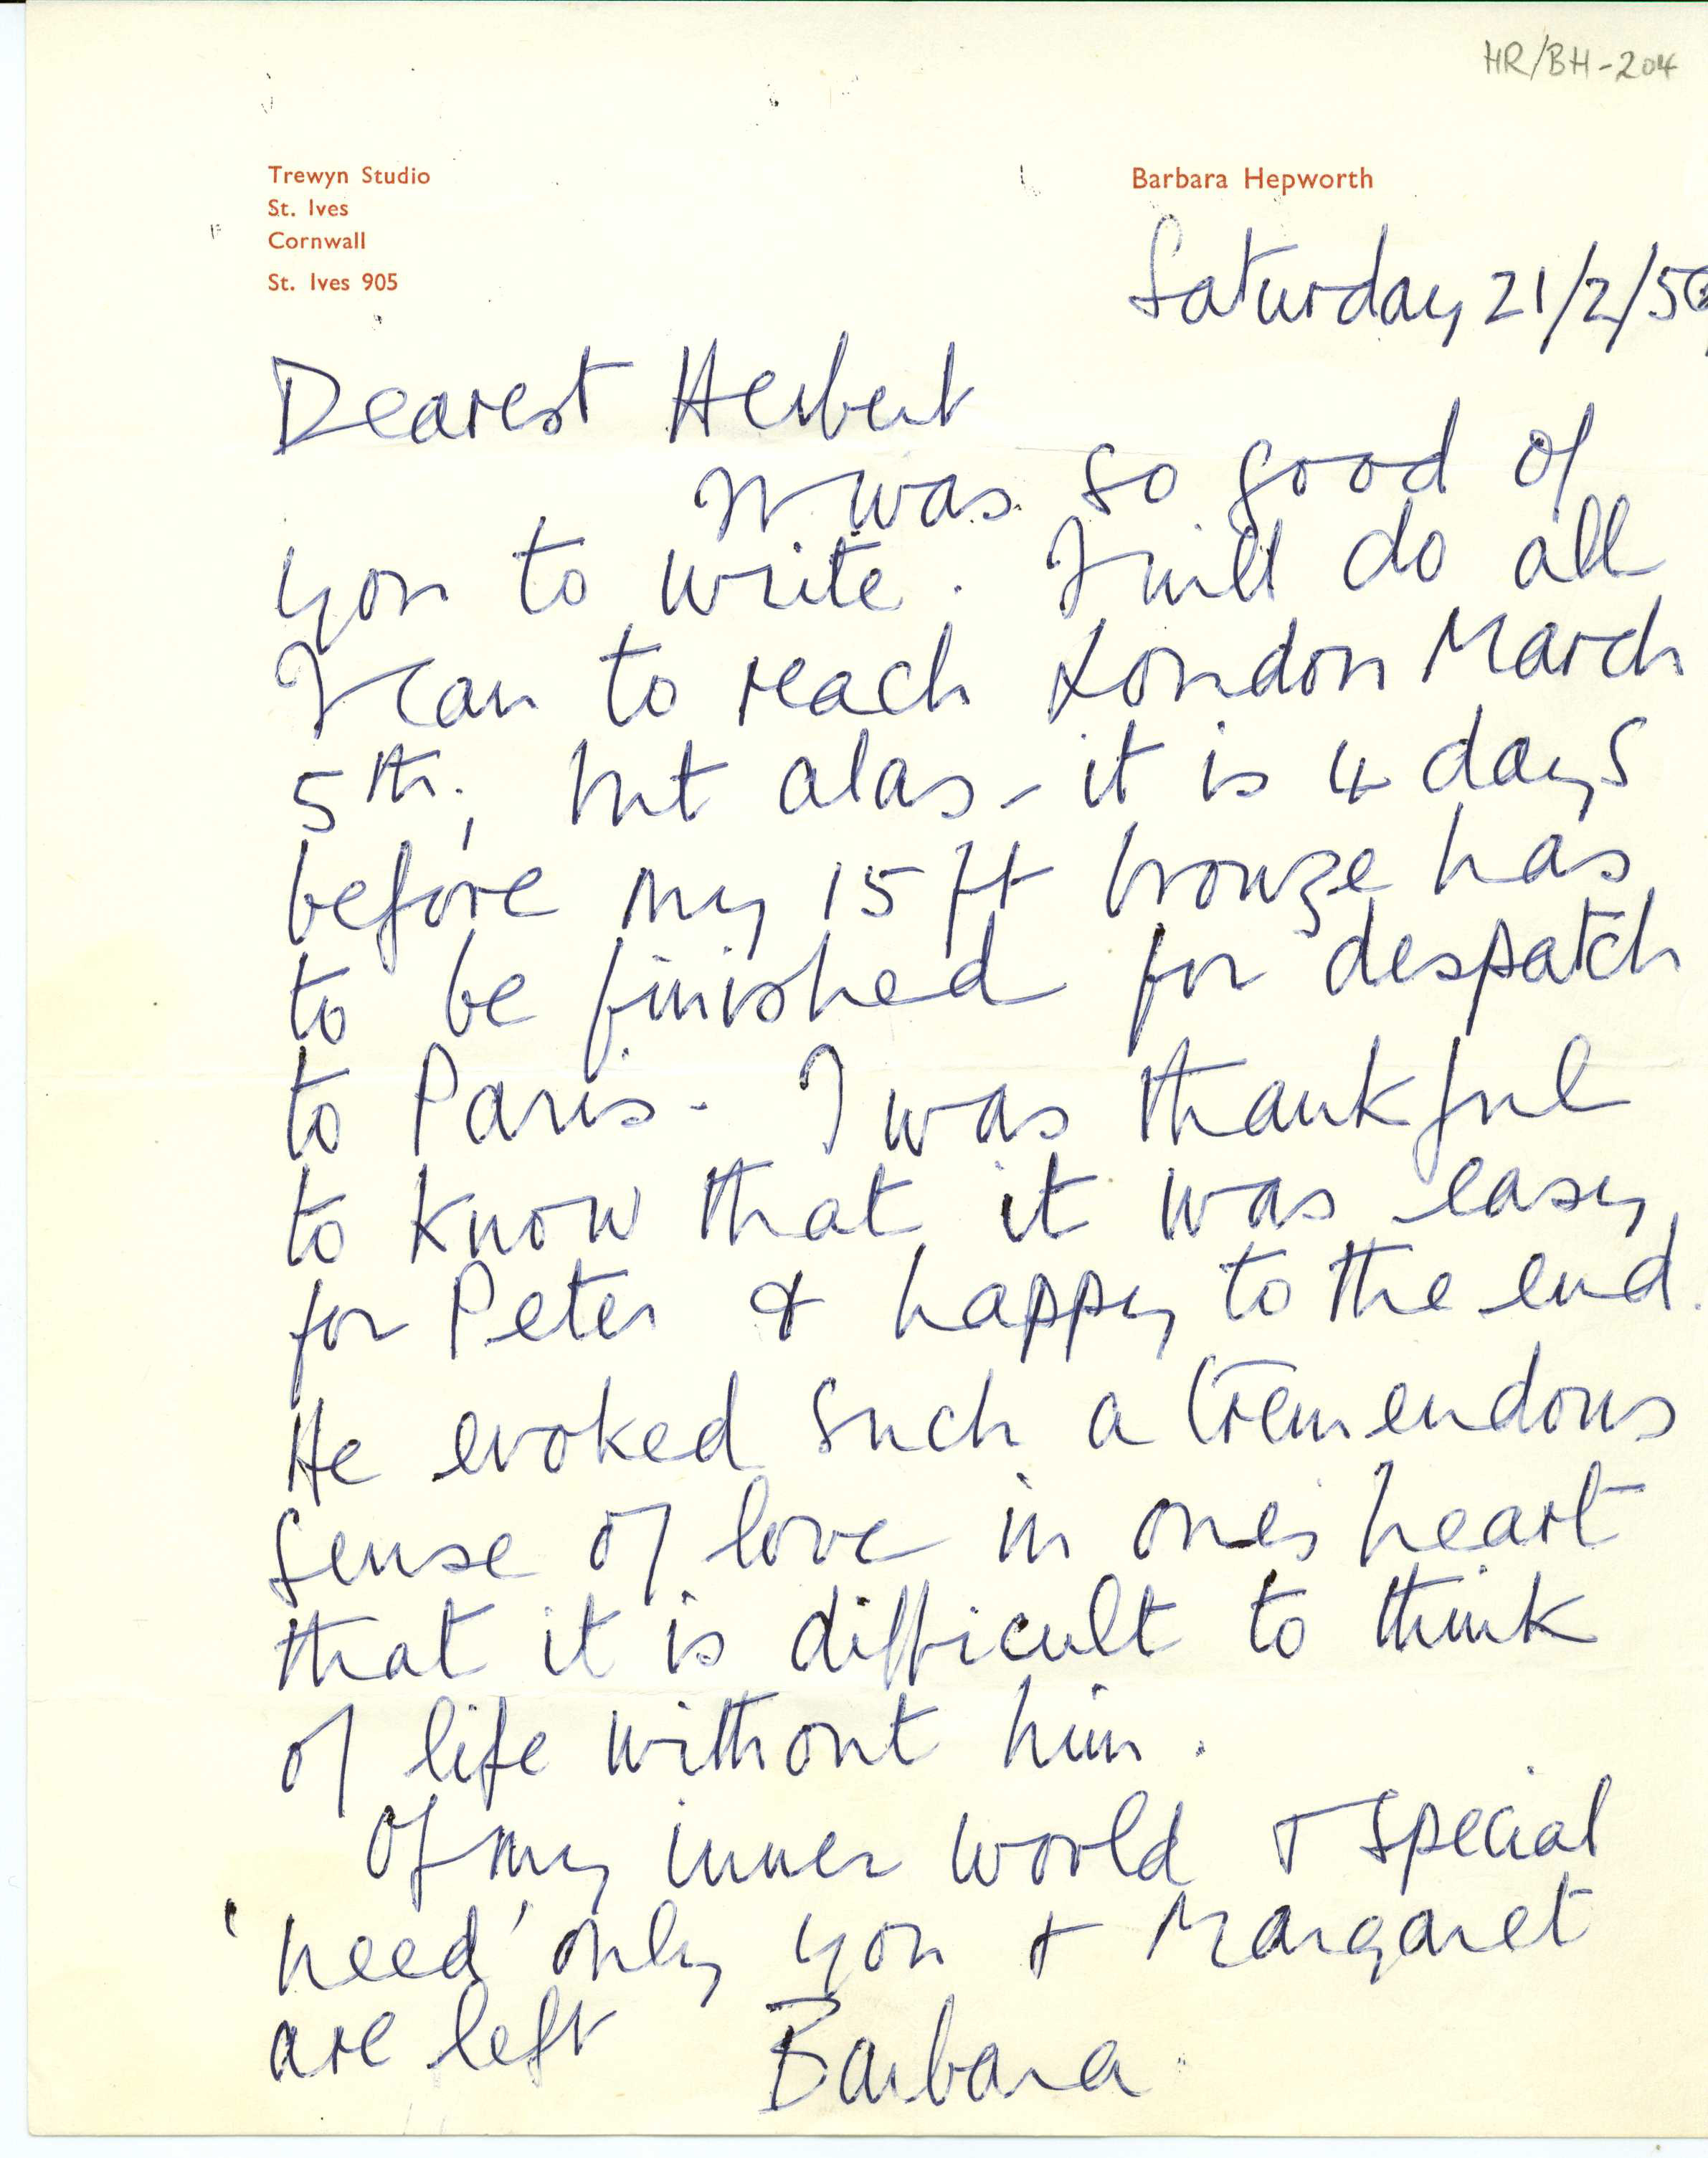 HR/BH-204
Trewyn Studio
St. Ives
Cornwall
St. Ives 905
Barbara Hepworth
Saturday 21/2/5
Dearest Herbert
It was so good of
you to write. I will do all
I can to reach London March
5th, but alas - it is 4 days
before my 15 ft bronze has
to be finished for despatch
to Paris. I was thankful
to know that it was easy
for Peter & happy to the end.
He evoked such a tremendous
sense of love in ones heart
that it is difficult to think
of life without him.
Of my inner world & special
'need' only you & Margaret
are left Barbara